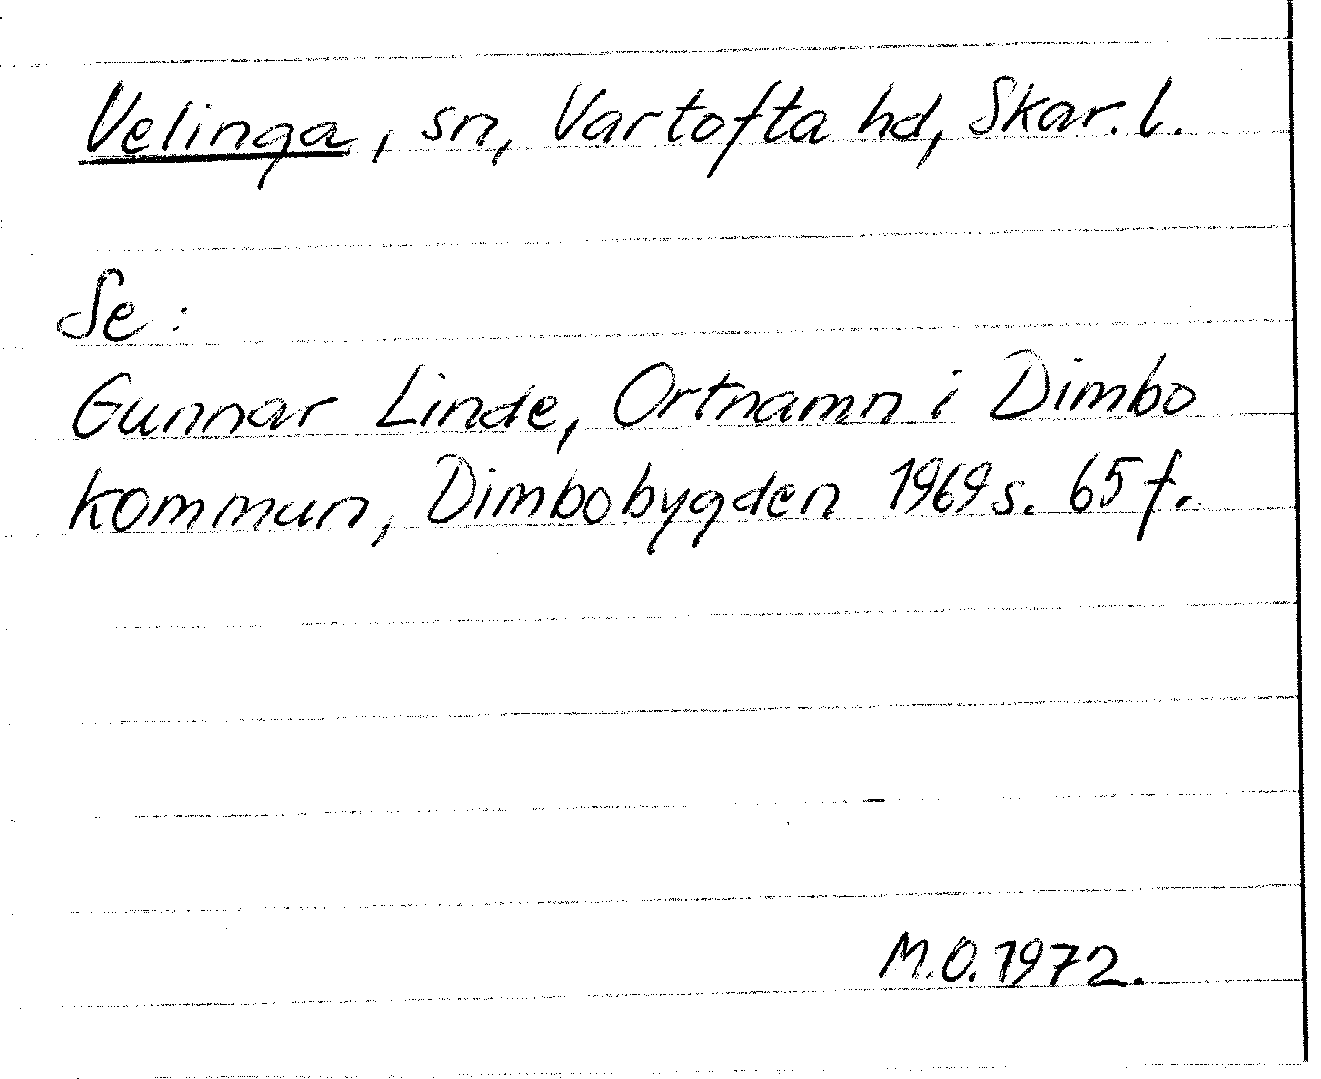 Velinga, sn, Vartofta hd, Skar. l.
Se:
Gunnar Linde, Ortnamn i Dimbo
kommun, Dimbobygden 1969 s. 65 f.
M.O. 1972.